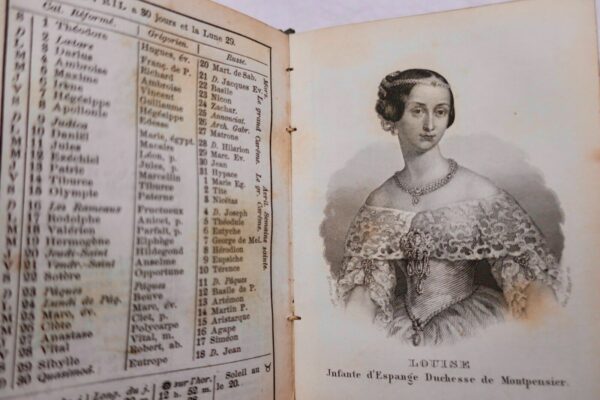 RIL a 30 jours et la Lune 29.
Cal. Réformé. Grégorien. Russe.
S 1 Théodore Hugues, év. 20 Mart. de Sab.
D 2 Lætare Franç. de P. 21 D. Jacques Ev.
L 3 Darius Richard 22 Basile
M 4 Ambroise Ambroise 23 Nicon
M 5 Maxime Vincent 24 Zachar.
J 6 Irène Guillaume 25 Annonciat.
V 7 Hégésippe Hégésippe 26 Arch. Gabr.
S 8 Apollonie Edesse 27 Matrone
D 9 Judica 28 D. Hilarion
L 10 Daniel Marie, égypt. 29 Marc. Ev.
M 11 Jules Macaire 30 Jean
M 12 Ezéchiel Léon, p. 31 Hypace
J 13 Patric Jules, p. 1 Marie Eg.
V 14 Tiburce Marcelin 2 Tite
S 15 Olympe Tiburce 3 Nicétas
D 16 Les Rameaux Paterne 4 D. Joseph
L 17 Rodolphe Fructueux 5 Théodule
M 18 Valérien Anicet, p. 6 Eutyche
M 19 Hermogène Parfait, p. 7 George de Mel.
J 20 Jeudi-Saint Elphège 8 Hérodion
V 21 Vendr.-Saint Hildegond 9 Eupsiche
S 22 Sothère Anselme 10 Térence
D 23 Pâques Opportune 11 D. Pâques
L 24 Lundi de Pâq. Beuve 12 Basile de P.
M 25 Marc, év. Marc, év. 13 Artémon
M 26 Clète Clet, p. 14 Martin P.
J 27 Anastase Polycarpe 15 Aristarque
V 28 Vital Vital, m. 16 Agape
S 29 Sibylle Robert, ab. 17 Siméon
D 30 Quasimod. Eutrope 18 D. Jean
Mars. Le grand Carême. Le gr. Carême.
Avril. Semaine sainte.
Long. du j. sur l'hor. Soleil au
12 h. 52 m. le 20.
LOUISE
Infante d'Espange Duchesse de Montpensier.